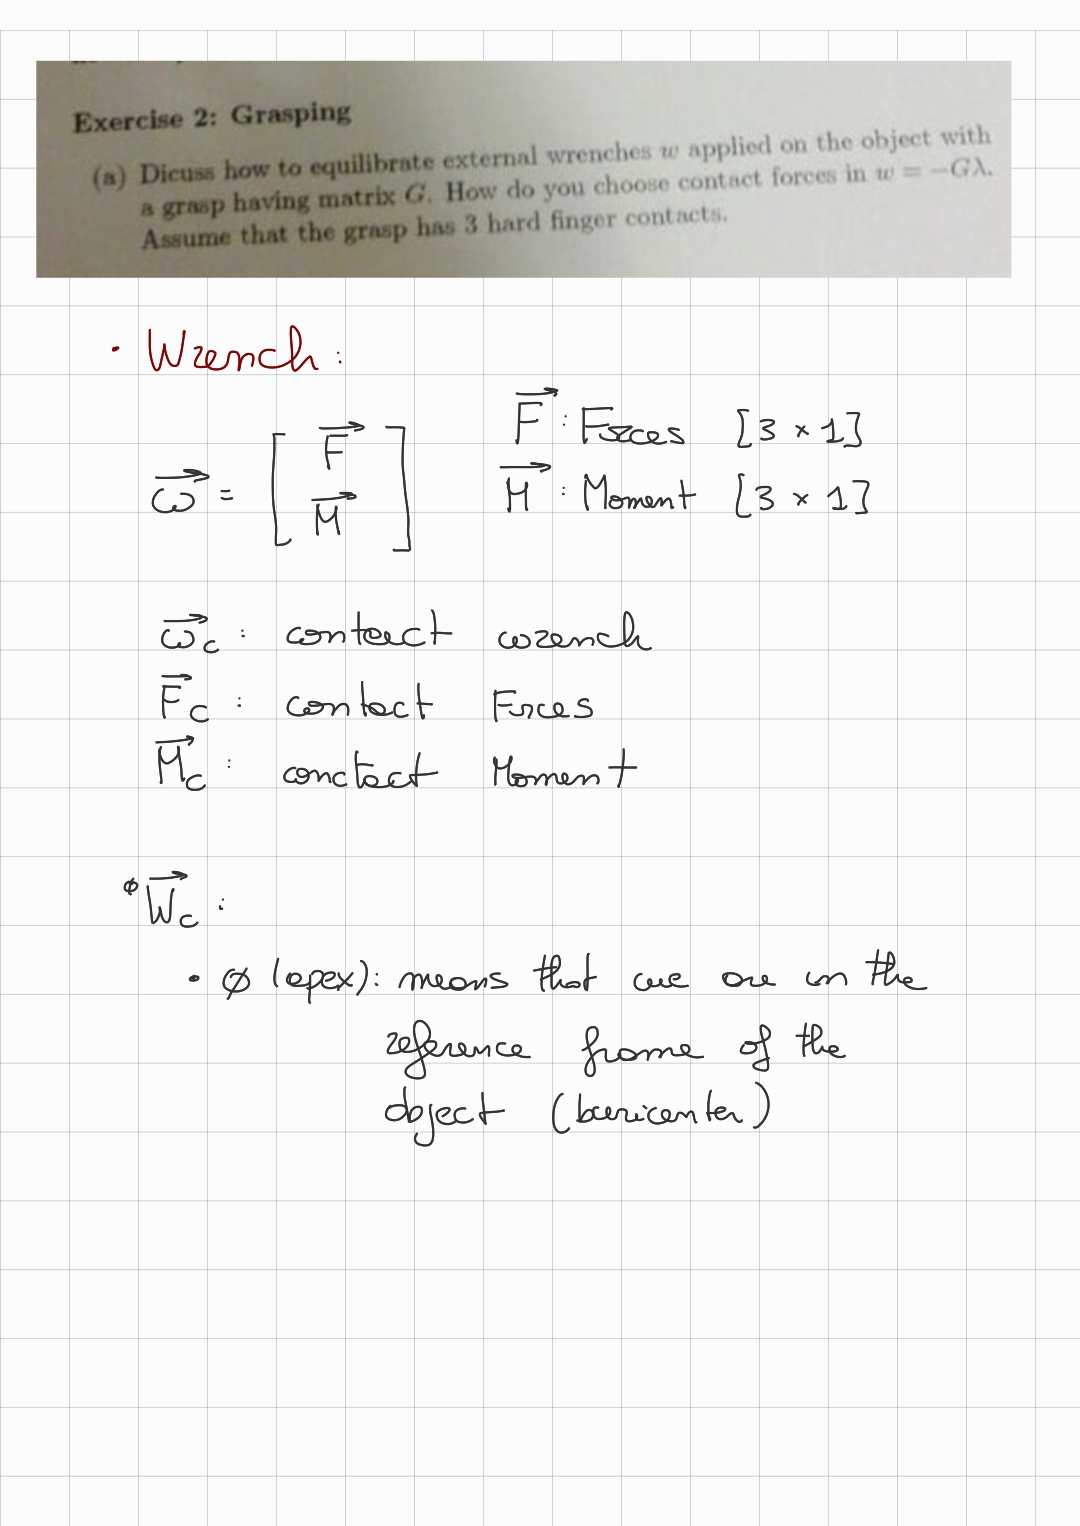 Exercise 2: Grasping
(a) Dicuss how to equilibrate external wrenches w applied on the object with
a grasp having matrix G. How do you choose contact forces in w = −Gλ.
Assume that the grasp has 3 hard finger contacts.
• Wrench:
F⃗ : Forces [3 × 1]
ω⃗ = [ F⃗ M⃗ ]
M⃗ : Moment [3 × 1]
ω⃗c : contact wrench
F⃗c : contact Forces
M⃗c : conctact Moment
ø W⃗c :
• ø (apex): means that we are in the
reference frame of the
object (baricenter)